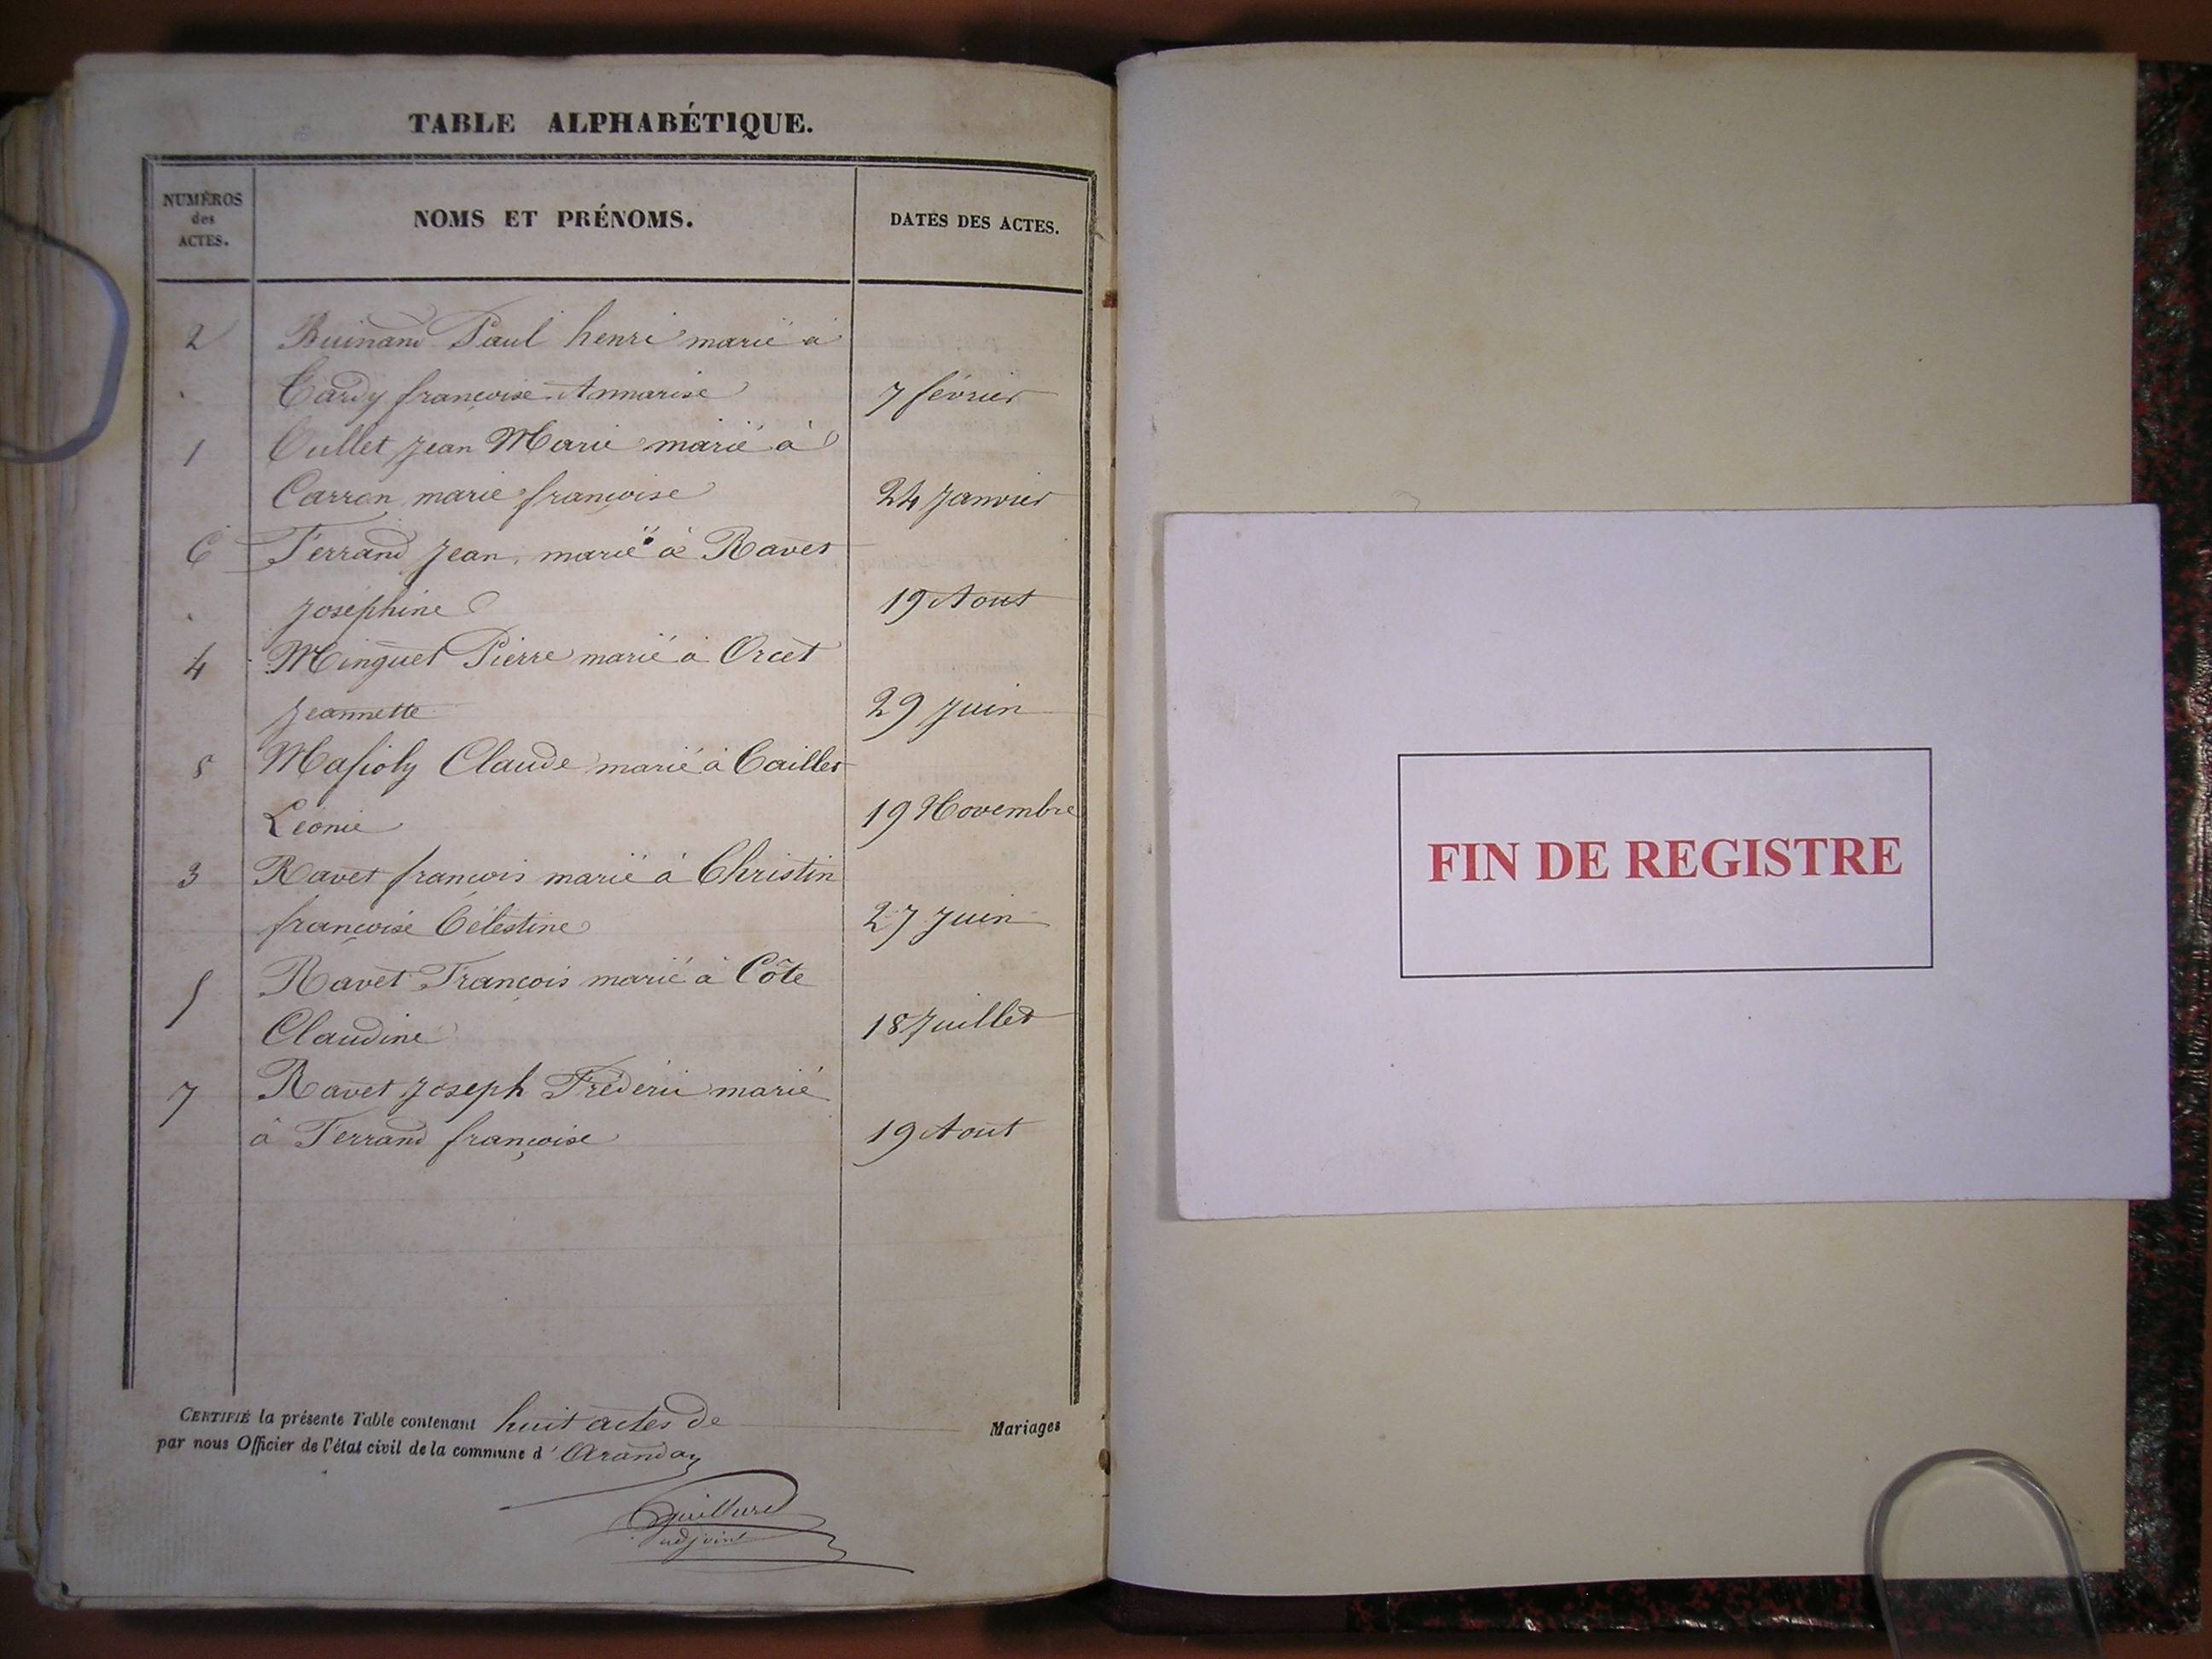 TABLE ALPHABÉTIQUE.
NUMÉROS
des
ACTES.
NOMS ET PRÉNOMS.
DATES DES ACTES.
2 Buinand Paul henri marié à
Tardy françoise Annarise 7 février
1 Cullet Jean Marie marié à
Carron marie françoise 24 Janvier
6 Ferrand Jean marié à Ravet
Joséphine 19 Aout
4 Minguet Pierre marié à Orcet
Jeannette 29 Juin
8 Massoly Claude marié à Caillet
Léonie 19 Novembre
3 Ravet françois marié à Christin
françoise Célestine 27 Juin
5 Ravet François marié à Côte
Claudine 18 Juillet
7 Ravet Joseph Fréderic marié
à Ferrand françoise 19 Aout
CERTIFIÉ la présente Table contenant huit actes de Mariages
par nous Officier de l'état civil de la commune d'Aranda
adjoint
FIN DE REGISTRE